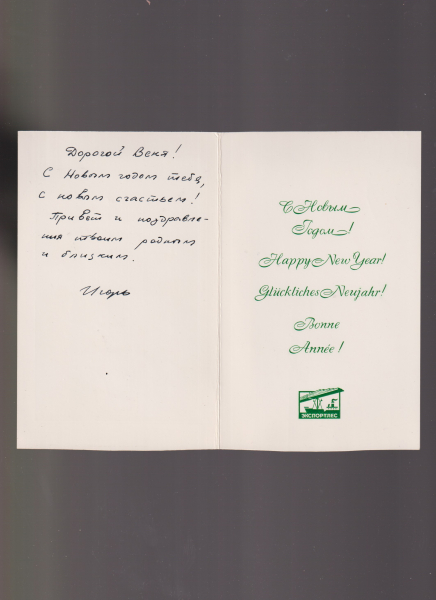 Дорогой Веня!
С Новым годом тебя,
с новым счастьем!
Привет и поздравле-
ния твоим родным
и близким.
Игорь
С Новым
Годом!
Happy New Year!
Glückliches Neujahr!
Bonne
Année!
ЭКСПОРТЛЕС